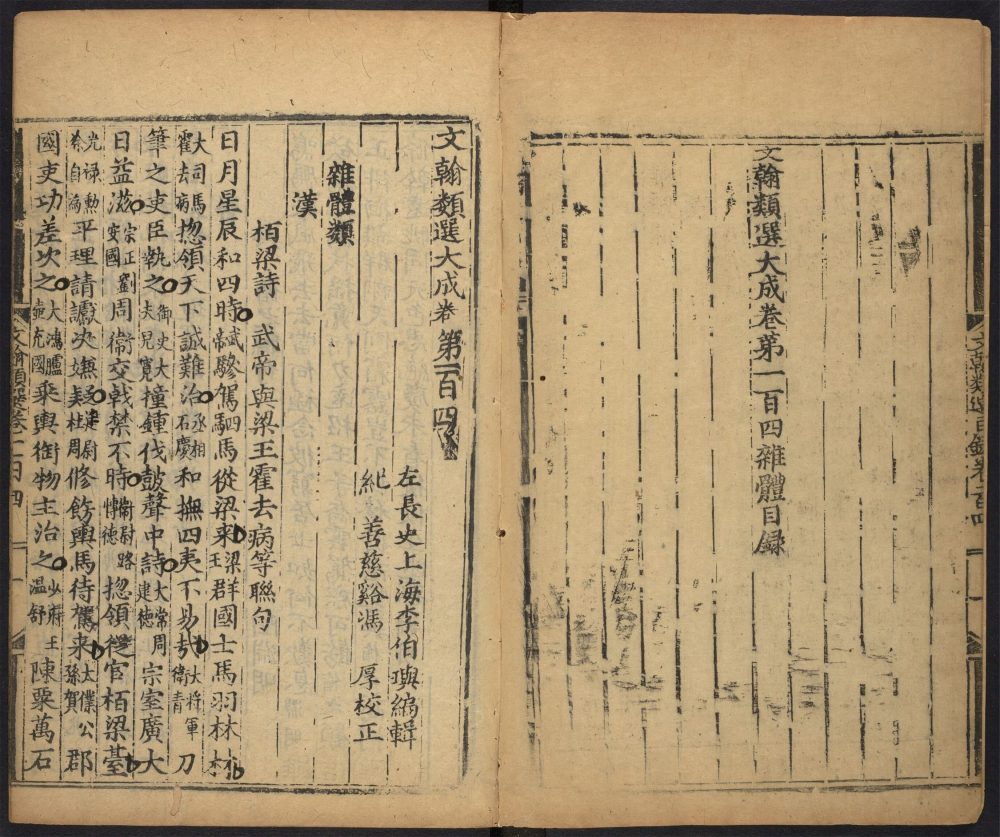 文翰類選大成卷第一百四雜體目録
文翰類選大成卷第一百四
左長史上海李伯璵編輯
紀善慈谿馮厚校正
雜體類
漢
栢梁詩 武帝與梁王霍去病等聯句
日月星辰和四時武帝驂駕駟馬從梁來梁王羣國士馬羽林材
大司馬霍去病揔領天下誠難治丞相石慶和撫四夷不易哉大將軍衛青刀
筆之吏臣執之御史大夫兒寛撞鍾伐鼓聲中詩太常周建德宗室廣大
日益滋宗正劉安國周衛交戟禁不時衛尉路博德揔領從官栢梁臺
光禄勲徐自為平理請讞決嫌疑廷尉杜周修飭輿馬待駕來太僕公孫賀郡
國吏功差次之大鴻臚壺充國乘輿御物主治之少府王温舒陳粟萬石